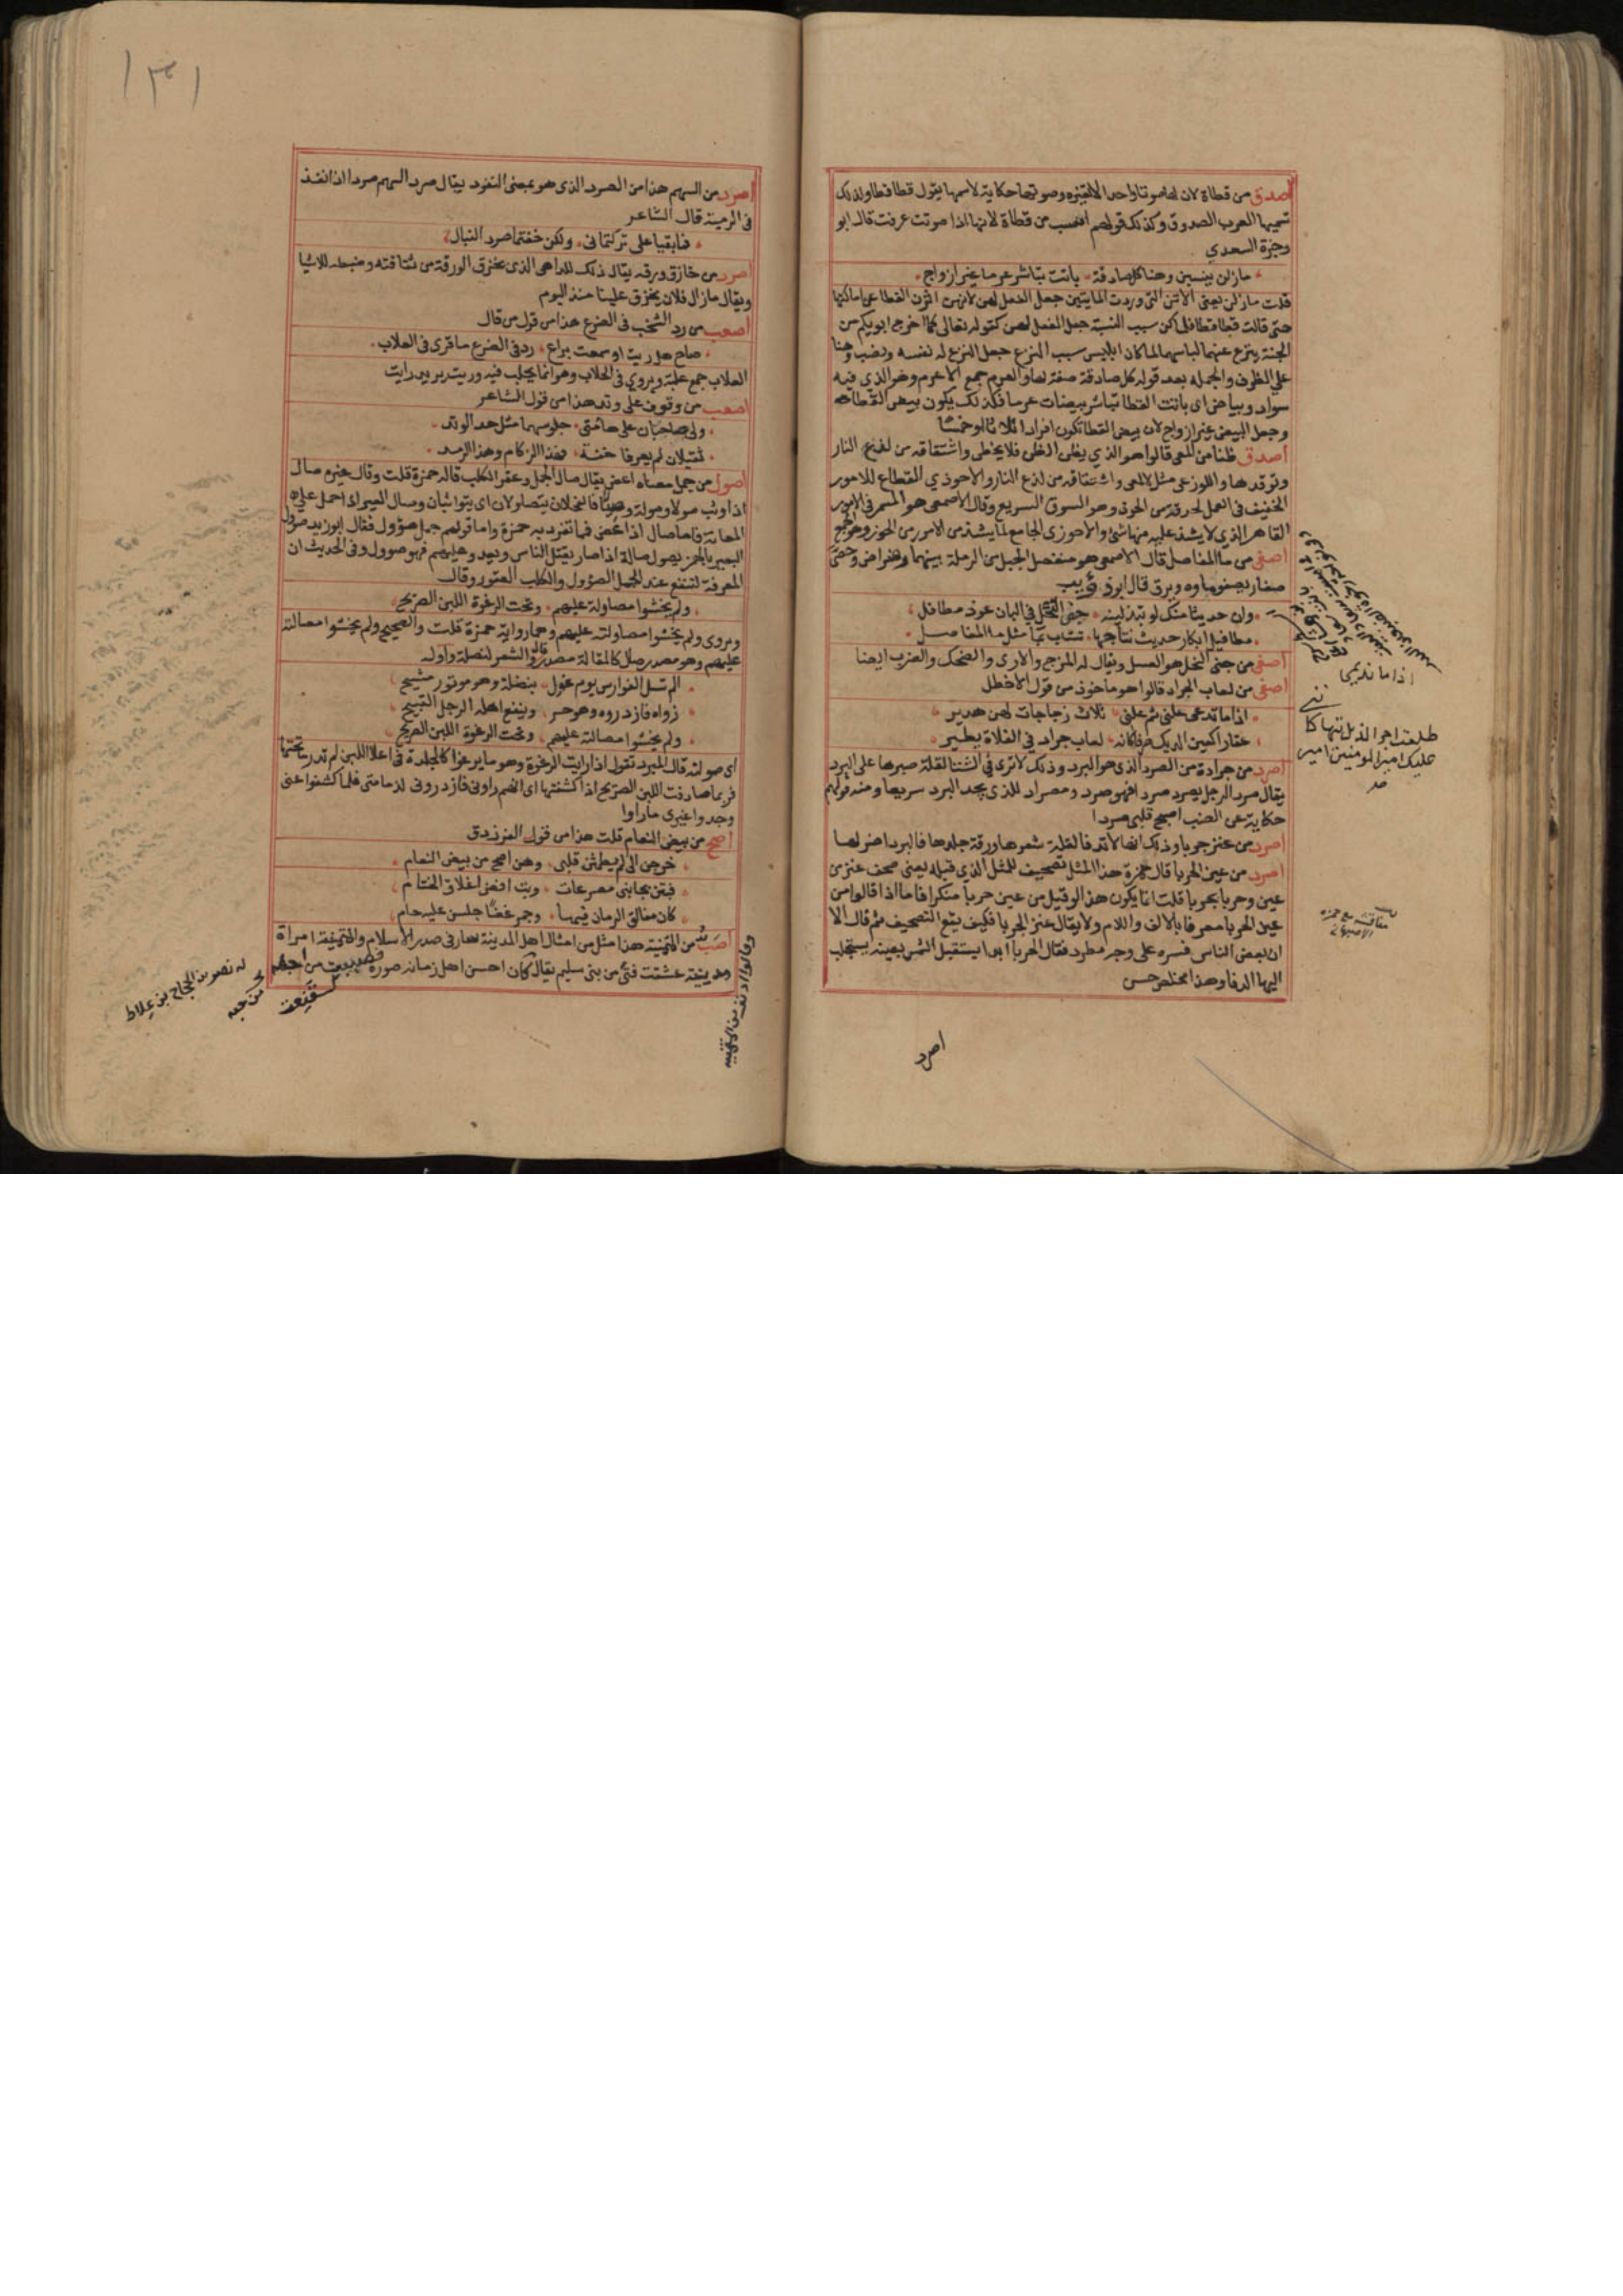 اصدق من قطاة لان لها صوتا واحدا لا تغيره وصوتها حكاية لاسمها يقول قطا قطا ولذلك
تسميها العرب الصدوق وكذلك قولهم انسب من قطاة لانها اذا صوتت عرفت قال ابو
وجزة السعدي
مازلن ينسبن وهنا كل صادقة باتت تباشر عرما غير ازواج
قلت مازلن يعني الاتن التي وردت الما يتبين جعل الفعل لهن لانهن اثرن القطا عن اماكنها
حتى قالت قطا قطا فلما كن سبب النسبة جعل الفعل لهن كقوله تعالى كما اخرج ابويكم من
الجنة ينزع عنهما لباسهما لما كان ابليس سبب النزع جعل النزع له نفسه ونصب وهنا
على الظرف والجمله بعد قوله كل صادقة صفة لها والعرم جمع الاعرم وهو الذي فيه
سواد وبياض اى باتت القطا تباشر بيضات عرما فكذلك يكون بيض القطا
وجعل البيض غير ازواج لان بيض القطا تكون افرادا ثلاثا او خمسا
اصدق ظنا من المعى قالوا هو الذي يظن الظن فلا يخطى واشتقاقه من لمع النار
وتوقدها واللوزعى مثل الالمعى واشتقاقه من لذع النار والاحوذي القطاع للامور
الخفيف فى العمل لحدقه من الحوذ وهو السوق السريع وقال الاصمعى هو المشمر فى الامور
القاهر الذي لا يشذ عليه منها شئ والاحوزى الجامع لما يشذ من الامور من الحوز وهو الجمع
اصفى من ما المفاصل قال الاصمعى هو منفصل الجبل من الرملة بينهما رضراض وحصى
صغار يصفو ماوه ويرق قال ابو ذؤيب
وان حديثا منك لو تبذلينه جنى النحل في البان عوذ مطافل
مطافيل ابكار حديث نتاجها تشاب بما مثل ما المفاصل
اصفى من جنى النحل هو العسل ويقال له المزج والارى والضحك والضرب ايضا
اصفى من لعاب الجراد قالوا هو ماخوذ من قول الاخطل
اذا ما نديمى علنى ثم علنى ثلاث زجاجات لهن هدير
عقارا كعين الديك صرفا كانه لعاب جراد في الفلاة يطير
اصرد من جرادة من الصرد الذى هو البرد وذلك لا ترى فى الشتا لقلة صبرها على البرد
يقال صرد الرجل يصرد صردا فهو صرد ومصراد للذى يجد البرد سريعا ومنه قولهم
حكاية عن الضب اصبح قلبى صردا
اصرد من عنز جربا وذلك انها لا تدفا لقلة شعرها ورقة جلدها فالبرد اضر لها
اصرد من عين الحربا قال حمزة هذا المثل تصحيف للمثل الذي قبله يعنى صحف عنز من
عين وحربا بجربا قلت انما يكون هذا لو قيل من عين حربا منكرا فاما اذا قالوا من
عين الحربا معرفا بالالف واللام ولا يقال عنز الجربا فكيف يقع التصحيف ثم قال الا
ان بعض الناس فسره على وجه مطرد فقال الحربا ابدا يستقبل الشمس بعينه يستجلب
اليها الدفا وهذا مخلص حسن
اذا ما نديمى
امير المومنين امير
اصرد
١٣١
اصرد من السهم هذا من الصرد الذى هو بمعنى النفوذ يقال صرد السهم صردا اذا نفذ
فى الرمية قال الشاعر
فما بقيا على تركتمانى ولكن خفتما صرد النبال
اصرد من خازق ورقه يقال ذلك للداهى الذى يخزق الورقة من ثقافته وضبطه للاشيا
ويقال مازال فلان يخزق علينا منذ اليوم
اصعب من رد الشخب فى الضرع هذا من قول من قال
صاح هل ريت او سمعت براع رد فى الضرع ما قرى فى العلاب
العلاب جمع علبة ويروى فى الحلاب وهو انما يحلب فيه وريت يريد رايت
اصعب من وقوف على وتد هذا من قول الشاعر
ولى صاحبان على هامتى جلوسهما مثل حد الوتد
ثقيلان لم يعرفا خفة فهذا الزكام وهذا الرمد
اصول من جمل معناه اعض يقال صال الجمل وعقر الكلب قاله حمزة قلت وقال غيره صال
اذا وثب صولا وصولة والفحلان يتصاولان اى يتواثبان وصال العير اذا حمل على
العانة فاما صال اذا عض فما تفرد به حمزة واما قولهم جمل صؤول فقال ابو زيد صؤل
البعير بالهمز يصول صالة اذا صار يقتل الناس ويعدو عليهم فهو صوول وفى الحديث ان
المعرفة لتنفع عند الجمل الصؤول والكلب العقور وقال
ولم يخشوا مصاولة عليهم وتحت الرغوة اللبن الصريح
ويروى ولم يخشوا مصاولته عليهم وهما رواية حمزة قلت والصحيح ولم يخشوا مصالته
عليهم وهو مصدر صال كالمقالة مصدر قال والشعر لنضلة واوله
الم تسل الفوارس يوم غول بنضلة وهو موتور مشيح
راوه فازدروه وهو حر وينفع اهله الرجل القبيح
ولم يخشوا مصالته عليهم وتحت الرغوة اللبن الصريح
اى صولته قال المبرد تقول اذا رايت الرغوة وهو ما يرغوا كالجلدة فى اعلا اللبن لم تدر ما تحتها
فربما صادفت اللبن الصريح اذا كشفتها اى انهم راونى فازدرونى لدمامتى فلما كشفوا عنى
وجدوا غيرى ما راوا
اصح من بيض النعام قلت هذا من قول الفرزدق
خرجن الى لم يطمثن قبلى وهن اصح من بيض النعام
فبتن بجانبى مصرعات وبت افض اغلاق الختام
كان مفالق الرمان فيها وجمر غضا جلسن عليه حام
اصب من المتمنية هذا مثل من امثال اهل المدينة سار فى صدر الاسلام والمتمنية امراة
مدينية عشقت فتى من بنى سليم يقال كان احسن اهل زمانه صورة
له نصر بن الحجاج بن علاط
وقالوا ادنف من المتمنى